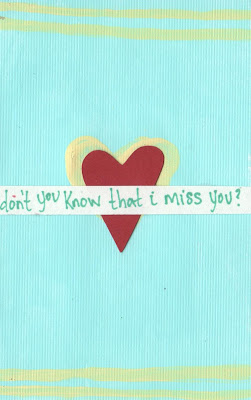 don't you know that i miss you?